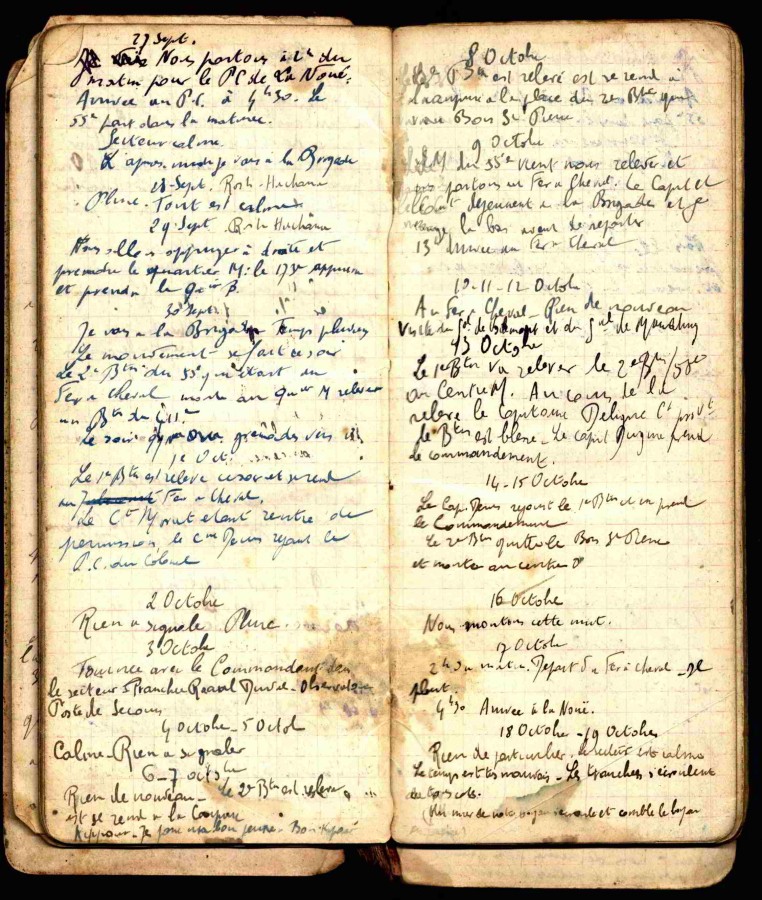 27 Sept.
Nous partons à 2h du
matin pour le P.C de La Noue.
Arrivée au P.C. à 4h30. Le
55e part dans la matinee.
Secteur calme.
L'apres midi je vais à la Brigade
28 Sept. Rosh-Hachana
Pluie. Tout est calme
29 Sept Rosh-Hachana
Nous allons appuyer à droite et
prendre le quartier M: le 173e appuie
et prend le Qer B.
30 Sept
Je vais à la Brigade Temps pluvieux
Le mouvement se fait ce soir
Le 2e Btn du 55e qui était au
Fer à Cheval, monte au Quer M relever
un Btn du 111e
Le soir grenades vers
1e Oct
Le 1e Btn est relevé ce soir et se rend
au Fer à Cheval.
Le Ct etant rentré de
permission, le cne Denis rejoint le
P.C. du Colonel
2 Octobre
Rien à signaler Pluie.
3 Octob
Tournée avec le Commandant dans
le secteur Tranchée Raoul Duval - Observatoire
Poste de Secours
4 Octobre - 5 Octob
Calme - Rien à signaler
6-7 Octobre
Rien de nouveau - le 2e Btn est relevé
et se rend à la
Kippour - Je jeune - Bon Kipour
8 Octobre
est relevé et se rend à
à la place du 2e Btn qui
Bois St Pierre
9 Octobre
du 55e vient nous relever et
nous partons au Fer à Cheval. le Capit et
déjeunent à la Brigade et je
mange là bas avant de repartir
13h Arrivée au Fer à Cheval
10-11-12 Octob
Au Fer à Cheval - Rien de nouveau
Visite du Gal de et du Gal de
13 Octobre
Le 1e Btn va relever le 2e Btn/55e
au Centre M. Au cours de la
releve le capitaine Deligne Ct provt
le Btn est blessé - Le capit prend
le commandement.
14-15 Octobre
Le Cap. Denis rejoint le 1e Btn et en prend
le Commandement
Le 2e Btn quitte le Bois St Pierre
et monte au centre
16 Octobre
Nous montons cette nuit.
17 Octob
2h du matin. Départ du Fer à cheval - Il
pleut.
4h30 Arrivée à la Noue.
18 Octobre - 19 Octobre
Rien de particulier. le secteur est calme
Le temps est très mauvais - Les tranchées s'écroulent
de tous cotés.
(Un mur de notre boyau s'écroule et comble le boyau